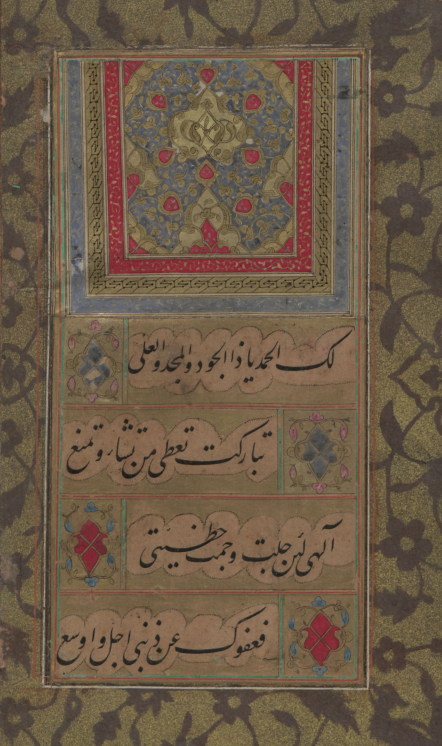 لك الحمد يا ذا الجود والمجد والعلى
تباركت تعطى من تشاء و تمنع
آلهى لئن جلت وجمت خطيتى
فعفوك عن ذنبى اجل و اوسع